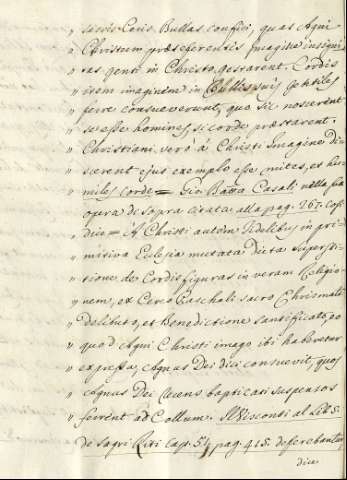 " sionis Ceris Bullas confici, quas Agni
" Christum præseferentis Imagine insigni
" tas genti in Christo gestarent. Cordis
" item imaginem in Bullis suis Gentiles
" ferre consueverunt, quo sic noscerent
" se esse homines, si corde præstarent.
" Christiani verò à Christi Imagine dis-
" scerent ejus exemplo esse mites, et hu
" miles corde = Gio: Batta Casali nella sua
" opera di sopra citata alla pag. 267. così
" dice = A Christi autem Fidelibus in pri
" mitiva Eclesia mutata dicta supersti
" tione de Cordis figuras in veram Religio
" nem, ex Cereo Paschali sacro Chrismate
" delibuto, et Benedictione santificato, eo
" quod Agni Christi imago ibi haberetur
" expressa, Agnus Dei dici consuevit, quos
" Agnus Dei Cereos baptizati suspensos
" ferrent ad Collum. Il Visconti al Lib. 5.
de Sagri Riti Cap. 51 pag. 415. deferebantur
dice